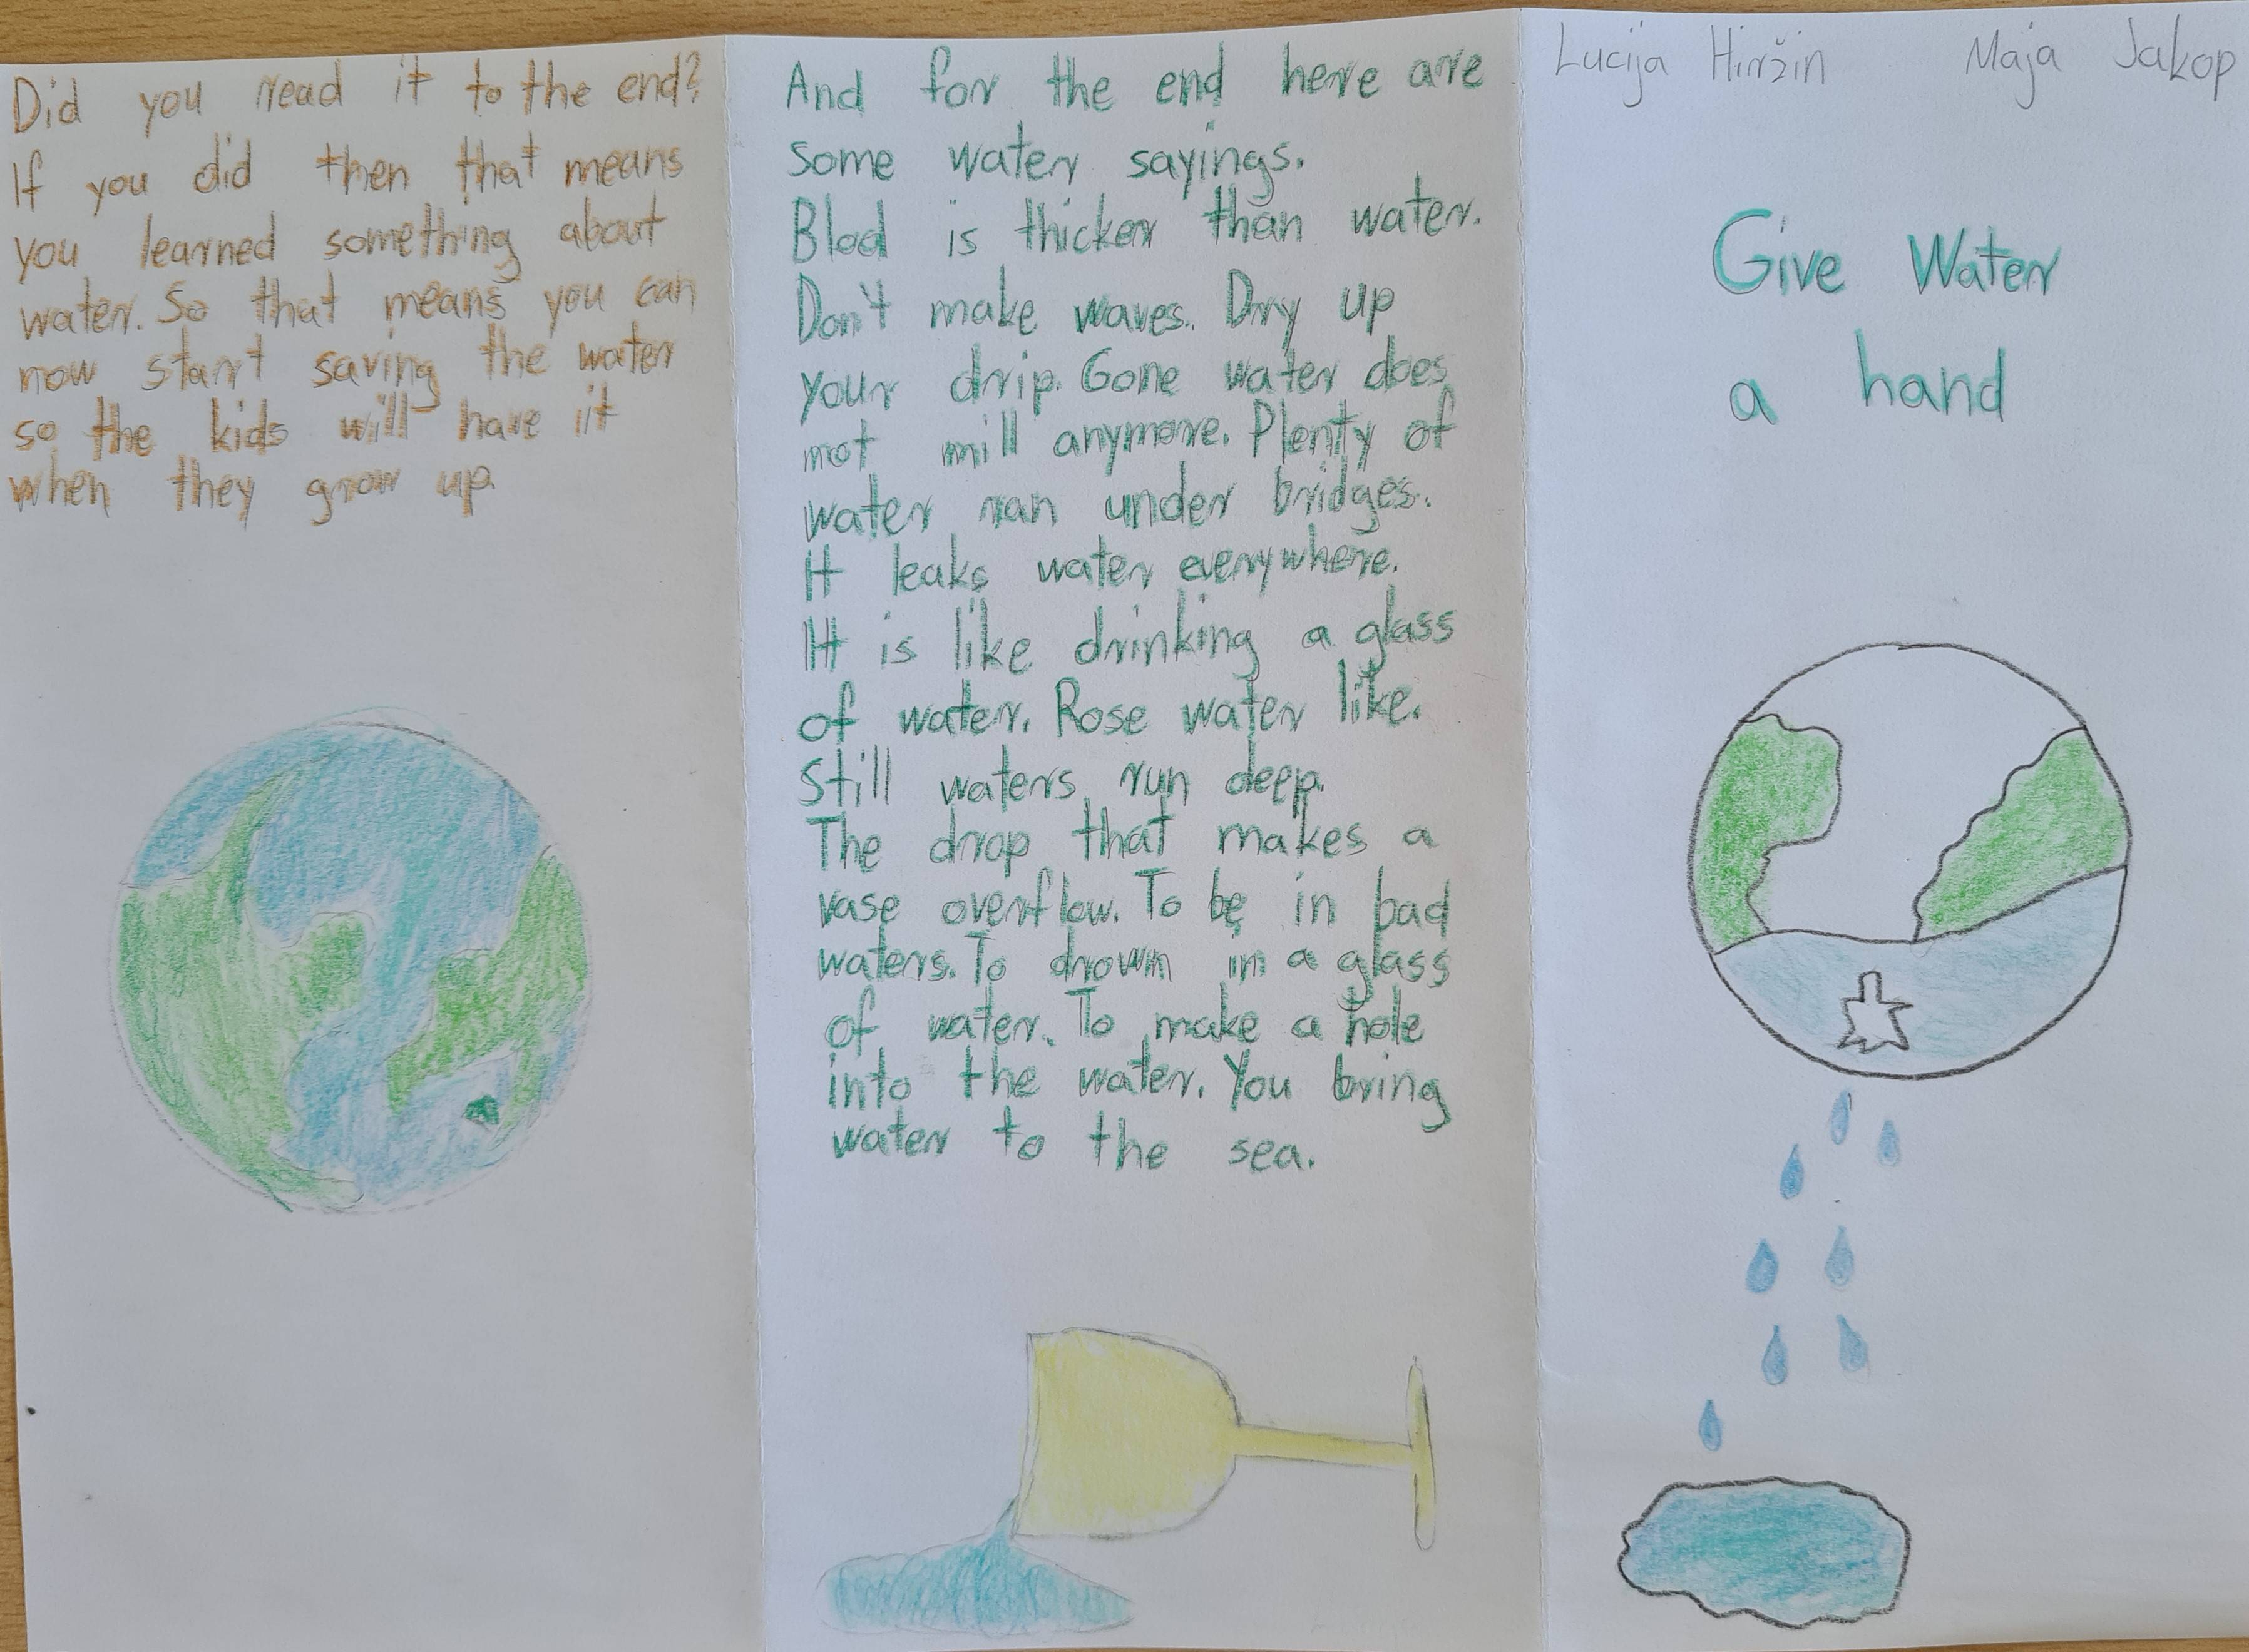 Did you read it to the end?
If you did then that means
you learned something about
water. So that means you can
now start saving the water
so the kids will have it
when they grow up
And for the end here are
some water sayings.
Blod is thicker than water.
Don't make waves. Dry up
your drip. Gone water does
not mill anymore. Plenty of
water ran under bridges.
It leaks water everywhere.
It is like drinking a glass
of water. Rose water like.
Still waters run deep.
The drop that makes a
vase overflow. To be in bad
waters. To drown in a glass
of water. To make a hole
into the water. You bring
water to the sea.
Lucija Hiržin Maja Jakop
Give Water
a hand